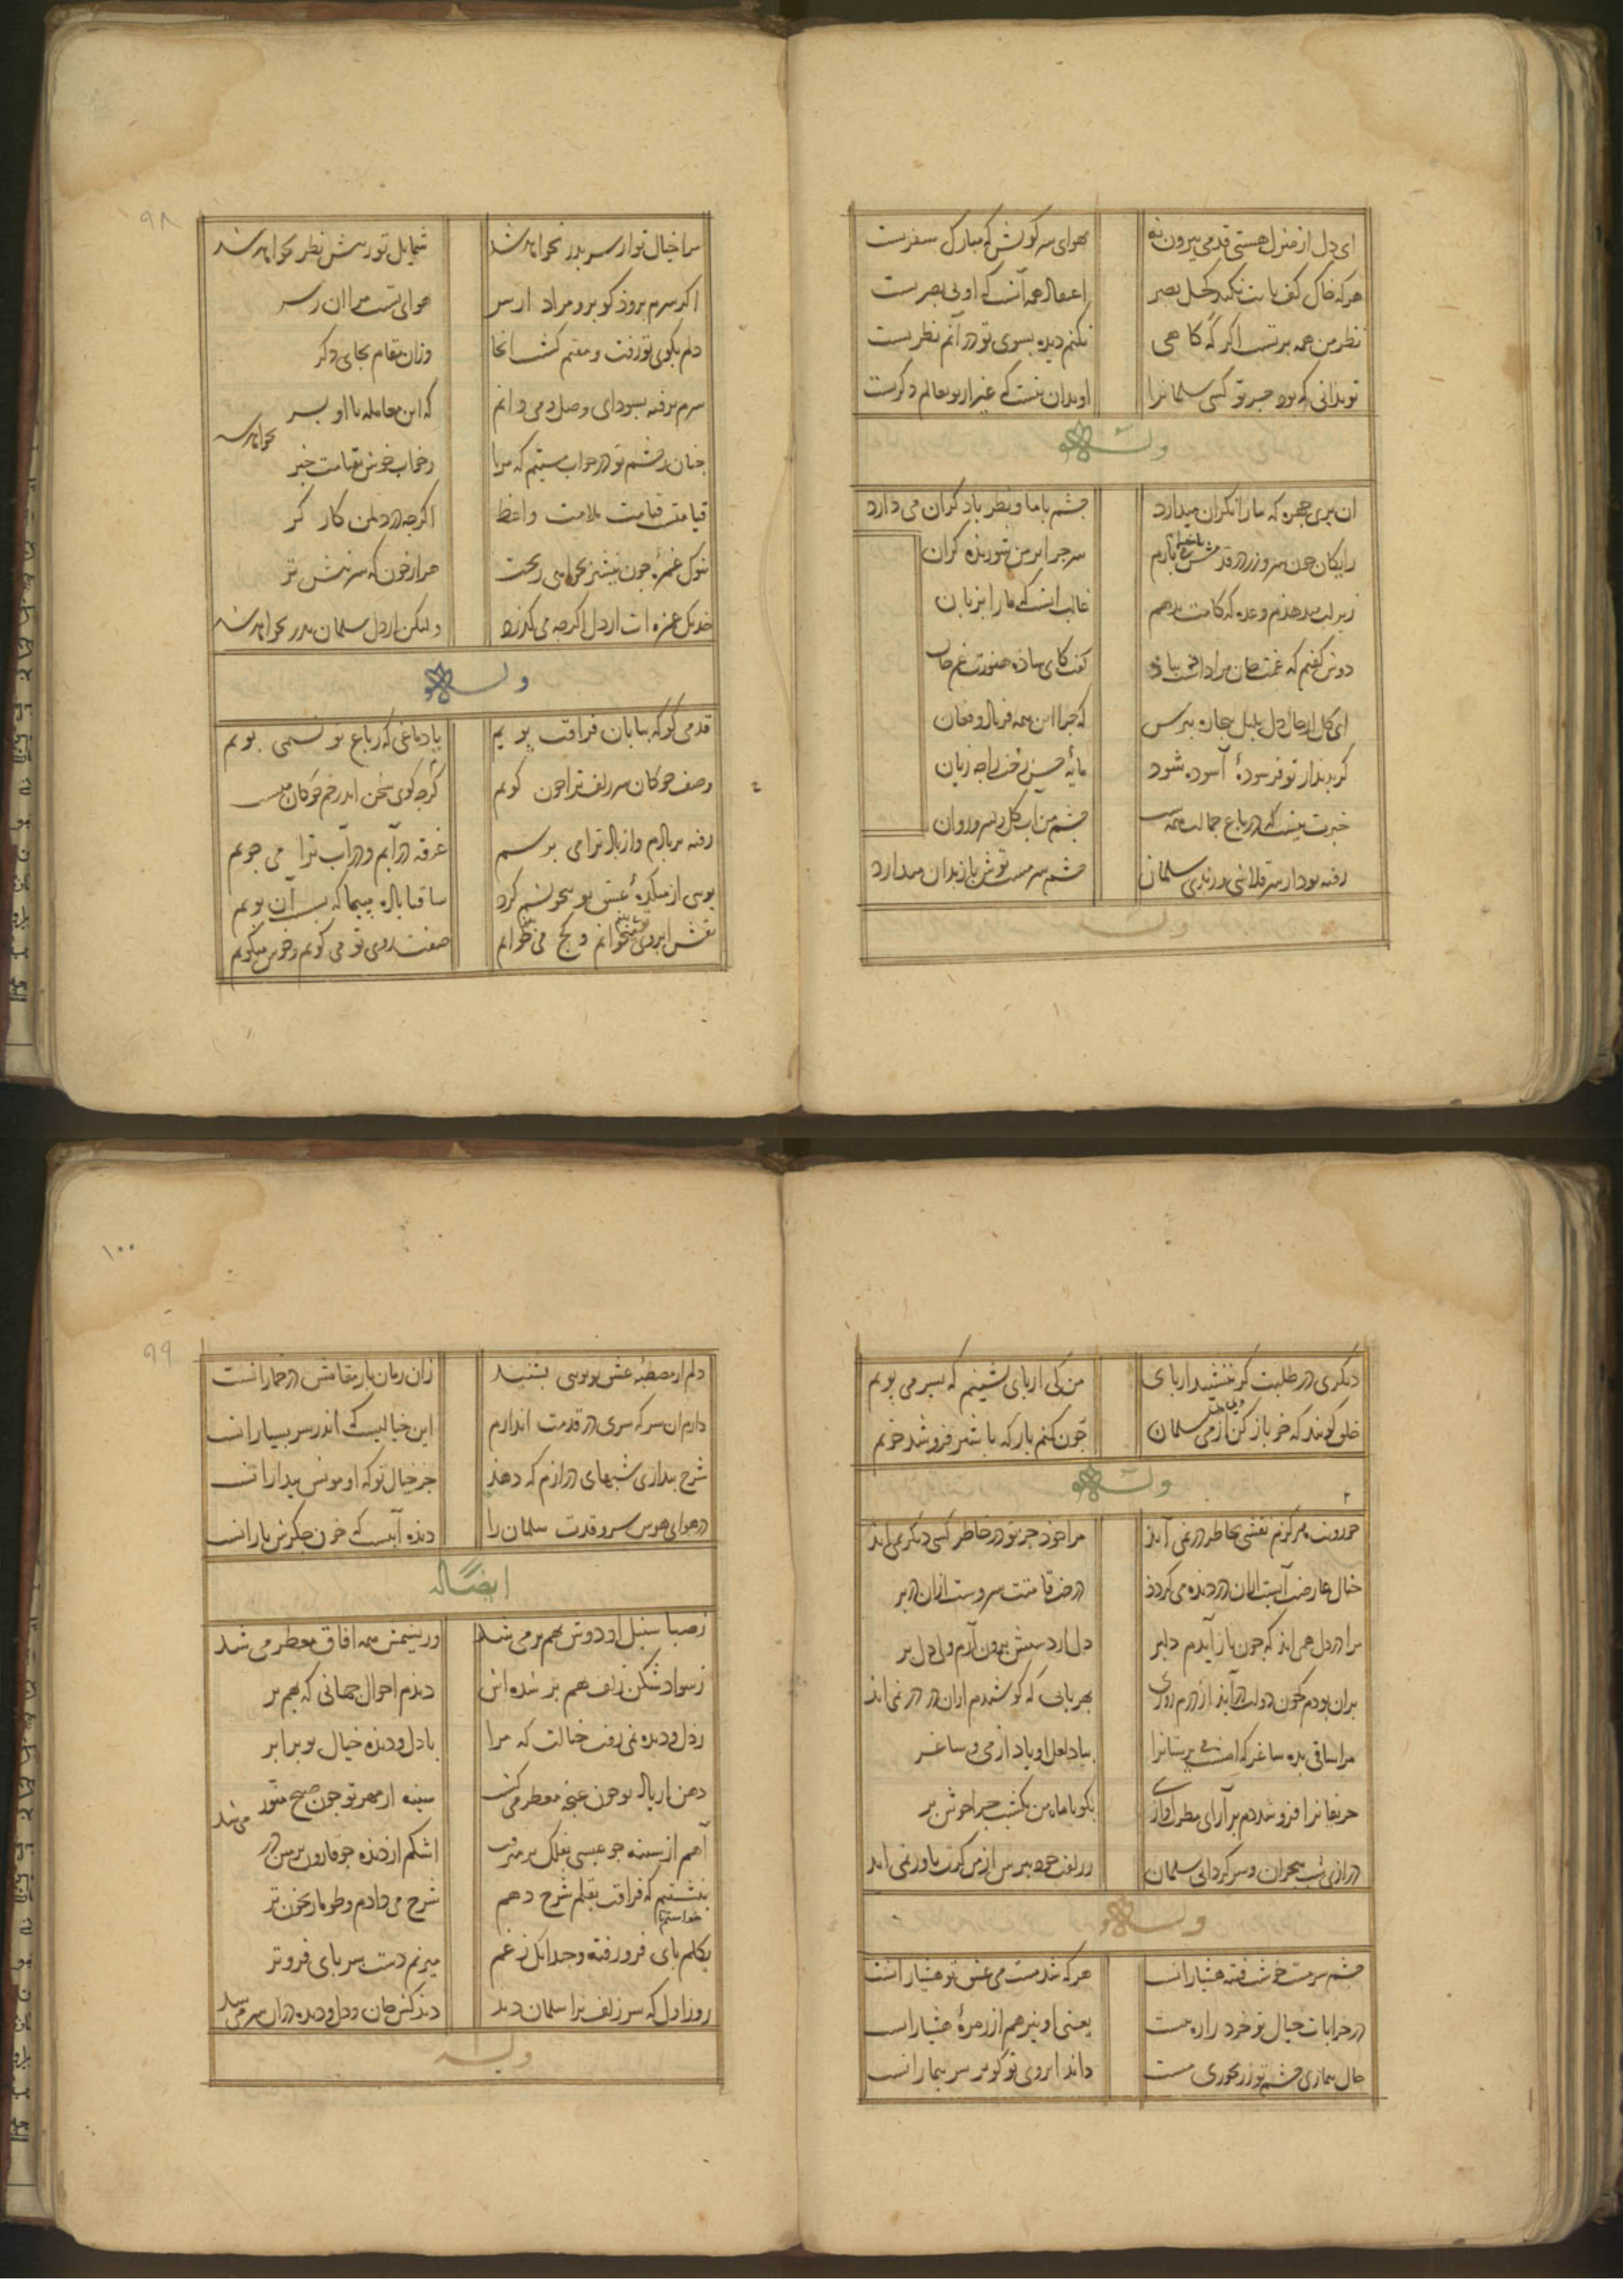 ای دل از منزل هستی قدمی بیرون نه بهوای سر کویش که مبارک سفرست
هرکه خاک کف پایت نکند کحل بصر اعتقاد همه آنست که او بی بصرست
نظر من همه برتست اگر گه گاهی نکنم دیده بسوی تو در آنم نظرست
تو بدانی که بود جز تو کسی سلمانرا او بدان نیست که غیر از تو بعالم دکرست
وله
ان پری چهره که ما را نکران میدارد چشم با ما و نظر با دکران می دارد
رایکان چون سر و زر در قدمش می بازم سر چرا بر من شوریده کران
زیر لب میدهدم وعده که کامت بدهم غالب انست که ما را بزبان
دوش کفتم که غمت جان مرا داد بباد کفت کای ساده هنوزت غم جان
ای کل از حال دل بلبل بیچاره بپرس که چرا این همه فریاد و فغان
کر بدیدار تو فرسوده آسوده شود مایه حسن رخت را چه زیان
خبرت نیست که در باغ جمالت همه شب چشم من آب کل و سرو روان
رفته بود از سر قلاشی و رندی سلمان چشم سرمست توش باز بدان میدارد
وله
۹۸
مرا خیال تو از سر بدر نخواهد شد شمایل تو ز پیش نظر نخواهد شد
اکر سرم برود کو برو مراد از سر هوای تست مرا ان ز سر
دلم بکوی تو رفت و مقیم کشت انجا وزان مقام بجای دکر
سرم برفت بسودای وصل و می دانم که این معامله با او بسر
نخواهد شد
چنان ز چشم تو در خواب مستیم که مرا ز خواب خوش بقیامت خبر
قیامتست قیامت ملامت واعظ اکرچه در دل من کار کر
بنوک غمزه چون نیشتر بخواهی ریخت هزار خون که سر نیش تر
خدنک غمزه ات از دل اکرچه می کذرد ولیکن از دل سلمان بدر نخواهد شد
وله
قدمی کو که بیابان فراقت پویم یا دماغی که ز باغ تو نسیمی بویم
وصف چوکان سر زلف ترا چون کویم کرچه کوی سخن اندر خم چوکان منست
رفته بر بادم و از باد ترا می پرسم غرقه در آبم و در آب ترا می جویم
بوی از میکده عشق تو بیخویشم کرد ساقیا باده بپیما که بست آن بویم
نقش ابروی تو میخوانم و کج می خوانم صفت روی تو می کویم و خوش میکویم
دیکری در طلبت کر بنشیند از پای من کی از پای نشینم که بسر می پویم
خلق کویند که خو باز کن از می سلمان چون کنم باز که با شیر فرو شد خویم
وله
۲
جز رویت هرکزم نقشی بخاطر در نمی آید مرا خود جز تو در خاطر کسی دیکر نمی آید
خیال عارضت آبست ازان در دیده می کردد درخت قامتت سروست ازان در بر
مرا در دل همی آید که چون باز آیدم دلبر دل از دستش برون آرم ولی دل بر
بران بودم که چون دولت در آید از درم روزی بهر بابی که کوشیدم ازان در در نمی اید
مرا ساقی بده ساغر که امشب می پرستانرا بیاد لعل او یاد از می و ساغر
حریفانرا فرو شد دم برآر ای مطرب آوازی بکو با ماه من یکشب چرا خوش بر
درازی شب هجران و سرکردانی سلمان ز زلف خود بپرس از من کرت باور نمی اید
وله
چشم سرمست خوشت فتنه هشیارانست هرکه شد مست می عشق تو هشیار انست
در خرابات خیال تو خرد را ره نیست یعنی او نیز هم از زمره هشیارانست
حال بیماری چشم تو ز رنجوری مست داند ابروی تو کو بر سر بیمارانست
۱۰۰
۹۹
دلم از مصطبه عشق تو بویی بشنید زان زمان باز مقامش در خمارانست
دارم ان سر که سری در قدمت اندازم این خیالیست که اندر سر بسیارانست
شرح بیداری شبهای درازم که دهد جز خیال تو که او مونس بیدارانست
در هوای هوس سرو قدت سلمان را دیده آبیست که خون جکرش بارانست
ایضا له
ز صبا سنبل او دوش بهم بر می شد وز نسیمش همه افاق معطر می شد
ز سواد شکن زلف بهم بر شده اش دیدم احوال جهانی که بهم بر
ز دل و دیده نمی رفت خیالت که مرا با دل و دیده خیال تو برابر
دهن از یاد تو چون غنچه معطر می کشت سینه از مهر تو چون صبح منور
می شد
آهم از سینه چو عیسی بفلک بر می رفت اشکم از دیده چو قارون بزمین در
بنشستم که فراقت بقلم شرح دهم شرح می دادم و طومار بخون تر
خواستم تا
بکلم پای فرو رفته و چندانک ز غم میزنم دست بسر پای فروتر
روز اول که سر زلف ترا سلمان دید دید کش جان و دل و دیده دران سر می شد
وله